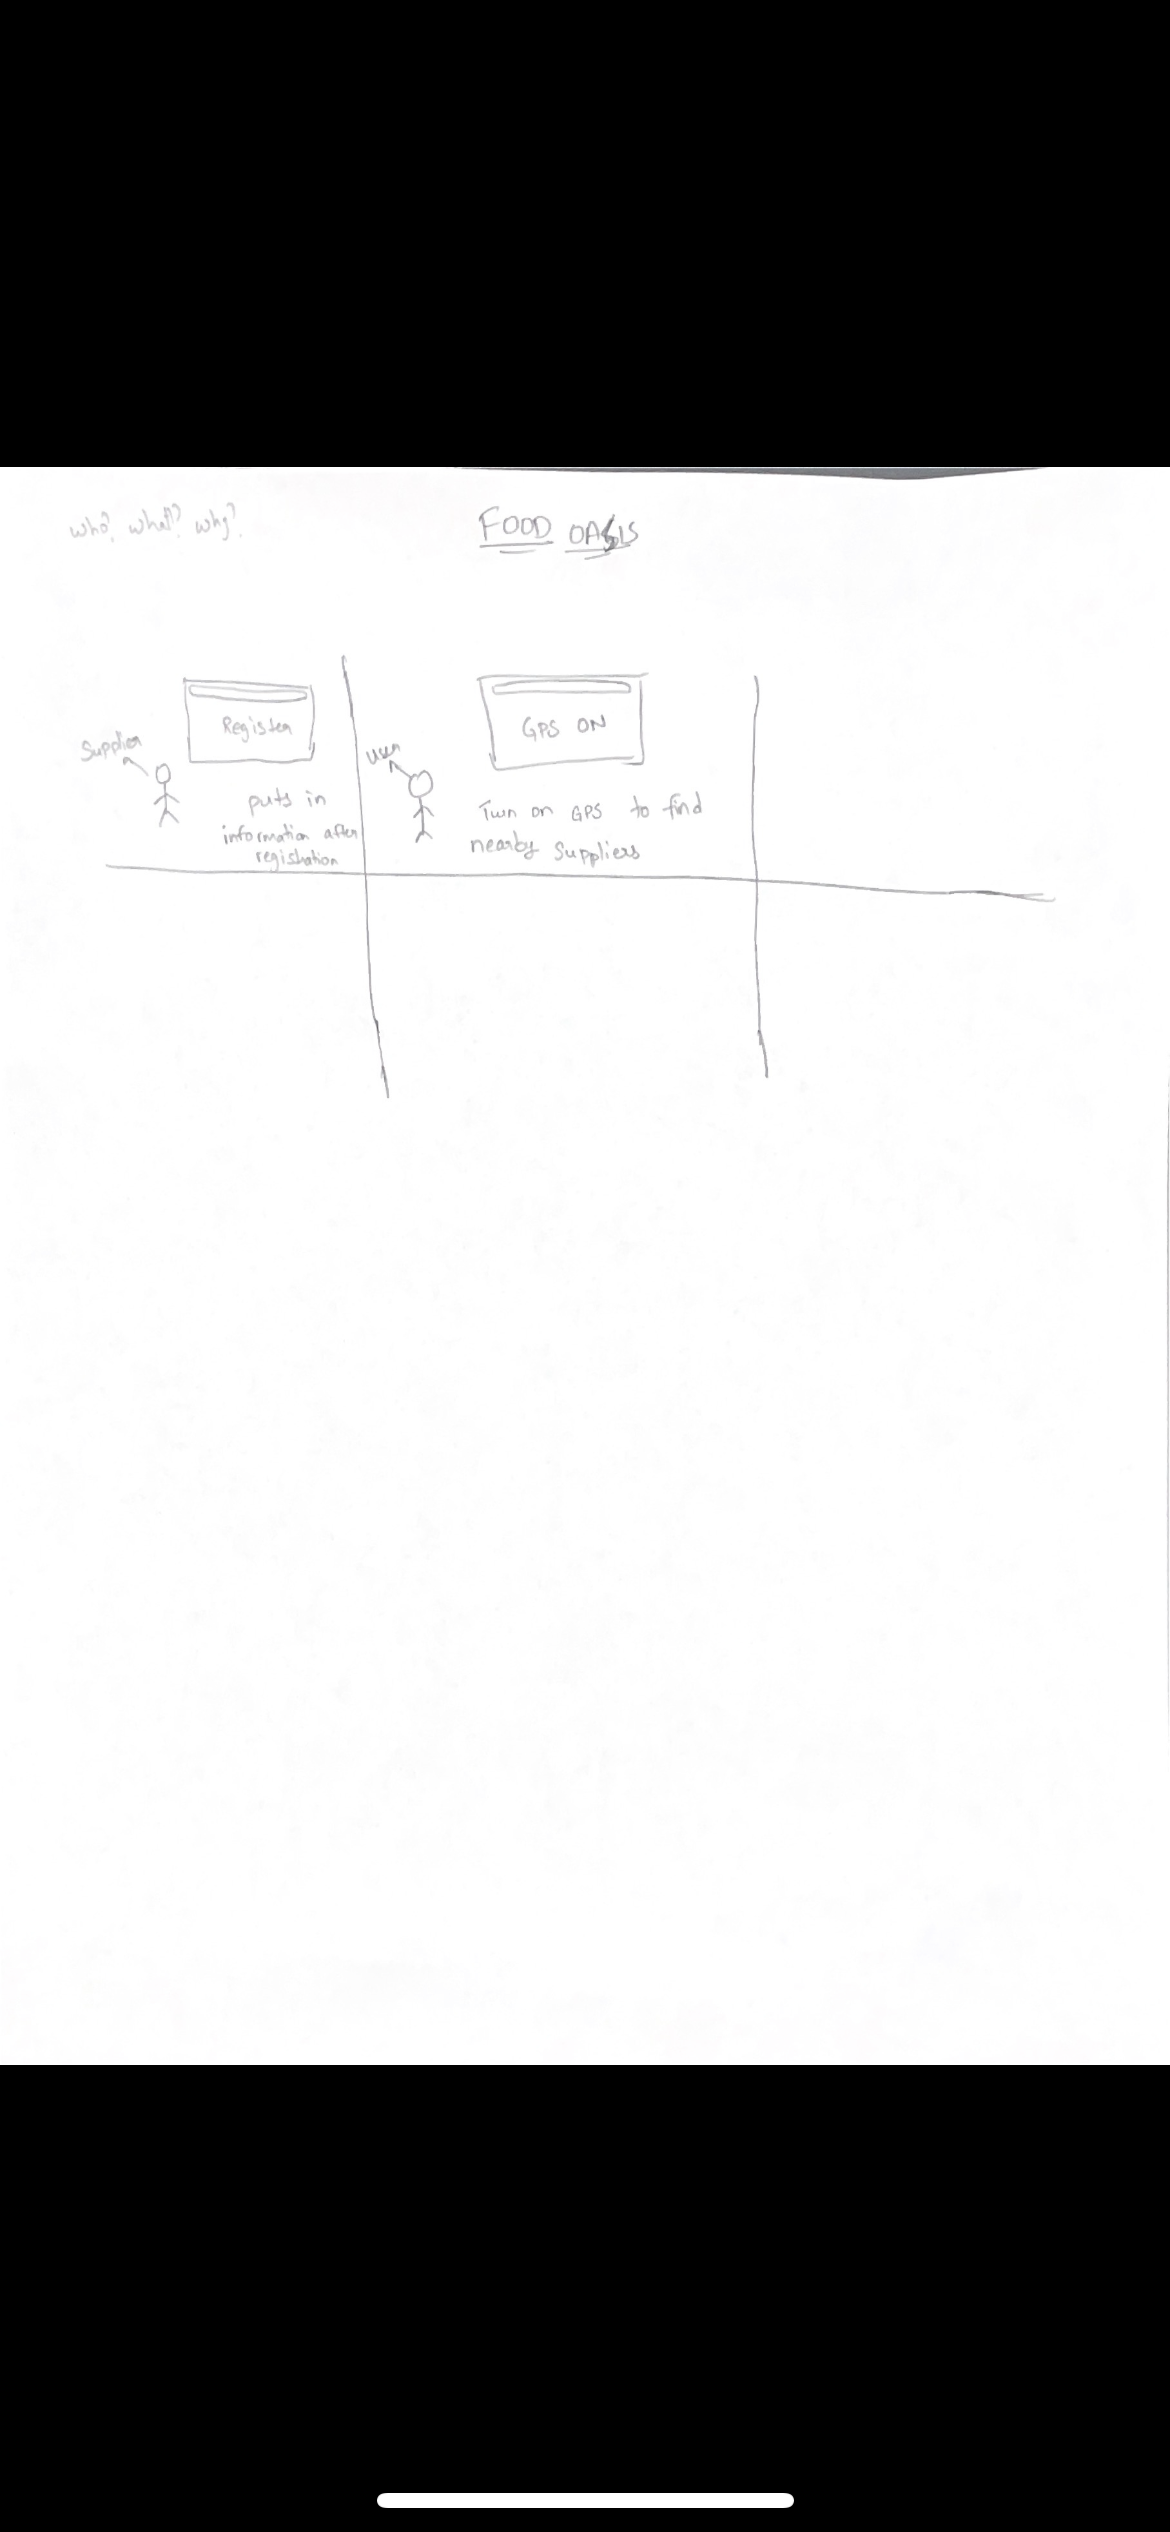 who? what? why?
FOOD OASIS
Supplier
Register
puts in
information after
registration
user
GPS ON
Turn on GPS to find
nearby Suppliers